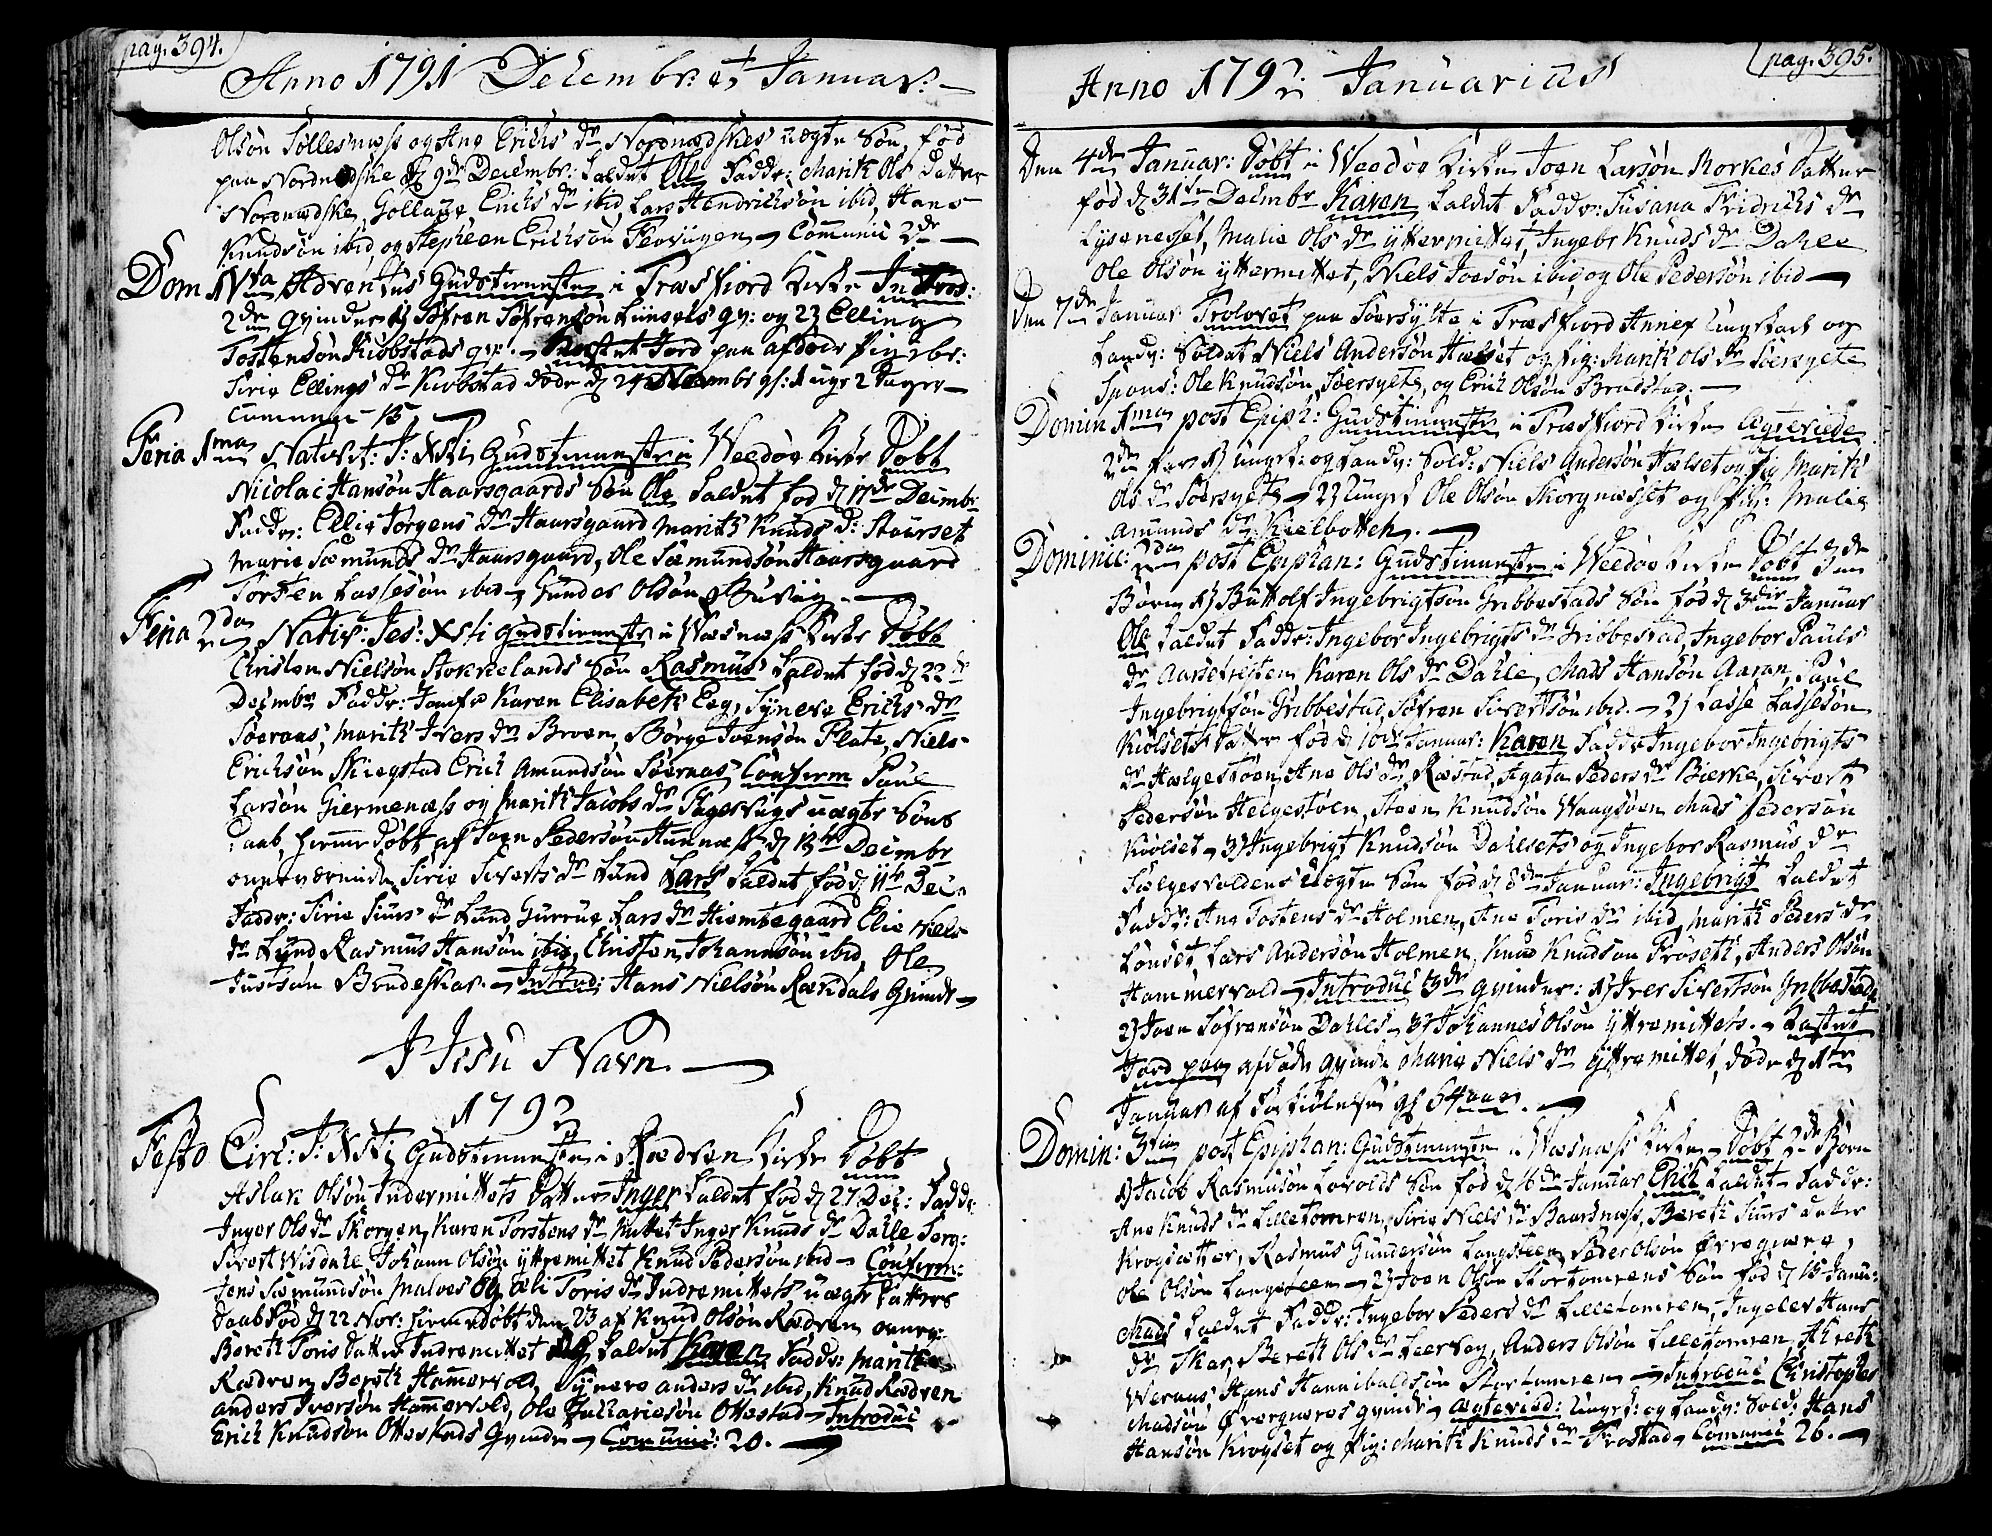 pag. 394.
Anno 1791 Decembr: et Januar:
Olsøn Sollesnæss og Ane Erichs dr Nordnedskes uægte Søn, fød
paa Nordnedske d 9de Decembr: kaldet Ole Faddr: Marith Ols Datter
Nordnedske, Erichs dr ibid, Lars Hendrichsøn ibid, Hans
Knudsøn ibid, og Stepheen Erichsøn Communic 2de
Dom IVta Adventus Gudstienesten i Træsfiord Kirke Introd:
2de qvinder 1) Søfren Søfrensøn qv: og 2) Elling
Tostensøn Kiobstads qv. Kastet Jord paa afdøde Pigebr:
Sirie Ellings dr Kiobstad døde d 24 Novembr gl: 1 uge 2 Dager
Communic 15
Feria 1ma Nativit: J: Xsti Gudstienesten i Weedøe Kirke Døbt
Nicolai Hansøn Haarsgaards Søn Ole kaldet fød d 17de Decmbr
Faddr: Ellie Jørgens dr Haarsgaard Marith Knuds dr Staurset
Marie Sæmunds dr Haarsgaard, Ole Sæmundsøn Haarsgaard
Torsten Lassesøn ibid Gunder Olsøn
Feria 2da Nativ: Jes: Xsti Gudstieneste i Wæsnæss Kirke Døbt
Christen Nielsøn Stokkelands Søn Rasmus kaldet fød d 22de
Decmbr Faddr: Jomfr Karen Elisabeth Eeg, Syneve Erichs dr
Søeraas, Marith Ivers dr Broen, Børge Ivensøn Flate, Niels
Erichsøn Skiegstad Erich Amundsøn Søeraas Confirm Paul
Larsøn Giermenæss og Marith Jacobs dr uægte Søns
Daab, hiemedøbt af Joen Pedersøn d 13de Decmbr
overværende Sirie Siverts dr Lund Lars kaldet fød d 11te Dec
Faddr: Sirie Siurs dr Lund, Lars dr Hiemtegaard Elie Niels
dr Lund Rasmus Hansøn ibid, Christen Johannsøn ibid, Ole
Brudeskar. Introd: Hans Nielsøn Rækdals Qvinde
I Jesu Navn
1792
Festo Circ: J: Xsti Gudstienesten i Rødven Kirke Døbt
Aslak Olsøn Indermittets Datter Inger kaldet fød d 27 Dec: Faddr
Inger Ols dr Skorgen, Karen Torstens dr Inger Knuds dr Dahle Serg:
Sivert Wisdahl, Johann Olsøn yttremittet Knud Pedersøn ibid Confirm:
Jens Sæmundsøn Malones og Toris dr Indremittets uægte Datters
Daab fød d 22 Nov: hiemedøbt den 23 af Knud Olsøn Rødven overv:
Bereth Toris Datter Indremittet kaldet Karen Faddr: Marith
Rødven Bereth Hamervold, Synneve Anders dr ibid, Knud Rødven
Anders Iversøn Hamervold, Ole Zachariesøn Ottestad Introduc
Erich Knudsøn Ottestads Qvinde Comunic: 20.
pag. 395.
Anno 1792 Januarius
Den 4de Januar: Døbt i Weedøe Kirke Joen Larsøn Rorkes Datter
fød d 31te Decmbr Karen kaldet Faddr: Susana Fridrichs dr
Lysenesset, Malie Ols dr yttermittet, Ingebr Knuds dr Dahle
Ole Olsøn yttermittet, Niels Joesøn ibid og Ole Pedersøn ibid
Den 7de Januar Trolovet paa Søersylte i Træsfiord Annex ungkarl og
Landv: Soldat Niels Andersøn Hælset og Pig: Marith Ols dr Søersylte
Spons: Ole Knudsøn Søersylte, og Erich Olsøn Brudstad.
Domin 1ma post Epiph: Gudstienesten i Træsfiord Kirke Ægteviede
2de par 1) ungk: og Landv: Sold: Niels Andersøn Hælset og Pig Marith
Ols dr Søersylte 2) Ungk: Ole Olsøn Skorgnæsset og Pig: Malie
Amunds dr Kielbotten.
Dominic: 2da post Epiphan: Gudstienesten i Weedøe Kirke Døbt 3de
Børn 1) Buttolf Ingebrigtsøn Gribbestads Søn fød d 3die Januar
Ole kaldet Faddr: Ingebor Ingebrigts dr Gribbestad, Ingebor Pauls
dr Karen Ols dr Dahle, Mads Hansøn Aaran, Paul
Ingebrigtsøn Gribbestad, Søfren Sivertsøn ibid. 2) Lasse Lassesøn
Kiølsets Datter fød d 10de Januar: Karen Faddr Ingebor Ingebrigts
dr Hælgestøen, Ane Ols dr Ræstad, Agata Peders dr Bierke, Sivert
Pedersøn Helgestøen, Steen Knudsøn Waagsøen Mads Pedersøn
Kiølset 3) Ingebrigt Knudsøn Dahlsets og Ingebor Rasmus dr
uægte Søn fød d 8de Januar: Ingebrigt kaldet
Faddr: Ane Tostens dr Holmen, Ane Toris dr ibid, Marith Peders dr
Lønset Lars Andersøn Holmen, Knud Knudsøn Frøseth, Anders Olsøn
Hammervold Introduc 3de qvinder: 1) Iver Sivertsøn Gribbestads
2) Joen Søfrensøn Dahles 3) Johannes Olsøn yttremittets. Kastet
Jord paa afdøde qvinde Marie Niels dr yttremittet, døde d 1te
Januar af Forkiølelse gl 64 aar.
Domin: 3tia post Epiphan: Gudstienesten i Wæsnæss Kirke Døbt 2de Børn
1) Jacob Rasmusøn Søn fød d 16de Januar Erich kaldet Faddr:
Ane Knuds dr Lilletomren, Sirie Niels dr Baarsnæss, Bereth Siurs Datter
Krogsætter, Rasmus Gundersøn Langsteen Peder Olsøn
Ole Olsøn Langsteen 2) Joen Olsøn Stortomrens Søn fød d 15 Janu:
Mads kaldet Faddr: Ingebor Peders dr Lilletomren, Ingeber Hans
dr Skar, Bereth Ols dr Leervog, Anders Olsøn Lilletomren,
Hans Hannibaldsøn Stortomren Introduc Christopher
Madsøn qvinde Ægteviet: Ungk: og Landv: Sold: Hans
Hansøn Krogset og Pig: Marith Knuds dr Frostad Comunic 26.